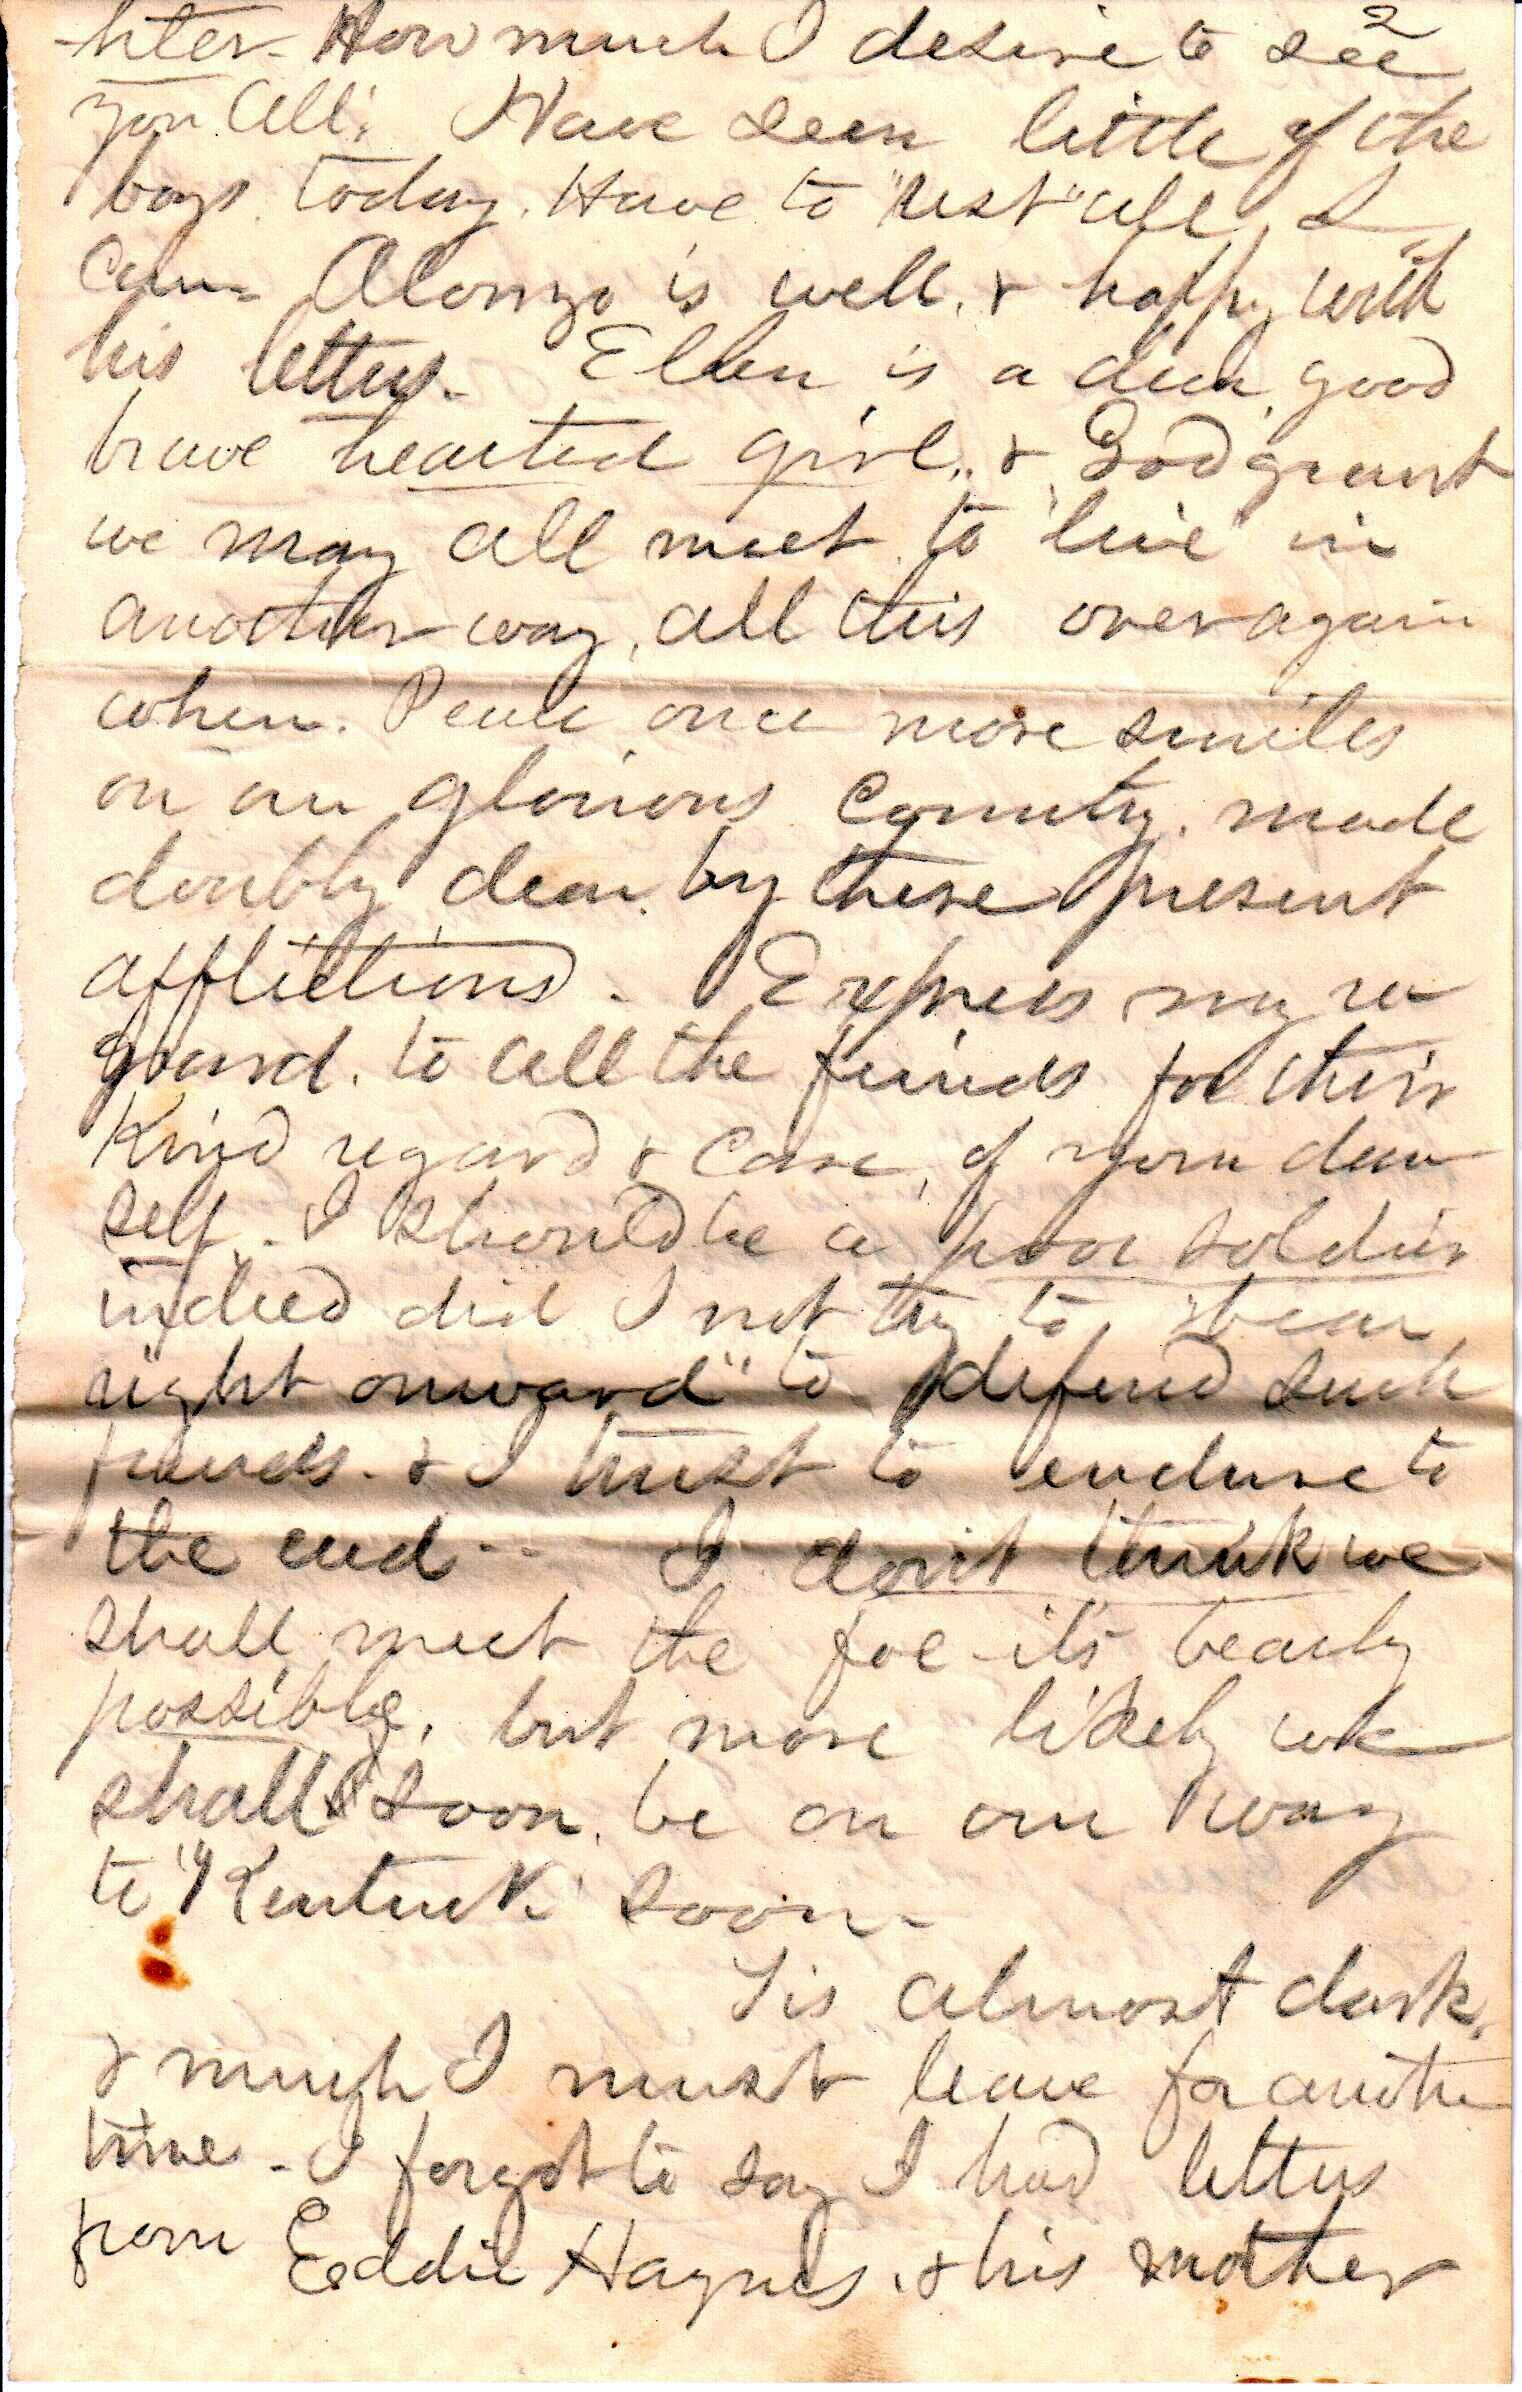 2
-hter- How much I desire to see
you all! Have seen little of the
boys today. Have to "rest" all I
can- Alonzo is well, & happy with
his letters- Ellen is a dear good
brave hearted girl, & God grant
we may all meet to 'live' in
another way, all this over again
when Peace once more smiles
on our glorious Country, made
doubly dear by these present
afflictions- Express my re
gard to all the friends for their
Kind regard & Care, of your dear
self- I should be a poor soldier
indeed did I not try to "bear
right onward" to defend such
friends- & I trust to endure to
the end-- I don't think we
shall meet the foe- its bearly
possible, but more likely we
shall soon be on our way
to "Kentuck" soon-
Tis almost dark,
& much I must leave for anothe
time- I forgot to say I had letters
from Eddie Haynes, & his mother